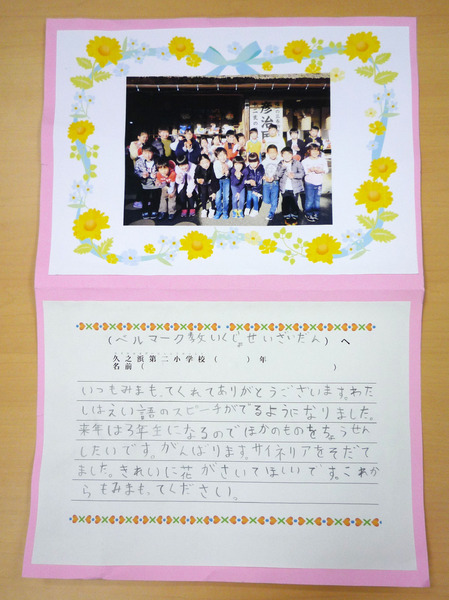 彦治民
(ベルマーク教いくじょせいざいだん) へ
久之浜第二小学校 (　　) 年
名前 (　　　　　　)
いつもみまもってくれてありがとうございます。わた
しはえい語のスピーチがでるようになりました。
来年は3年生になるのでほかのものをちょうせん
したいです。がんばります。サイネリアをそだて
ました。きれいに花がさいてほしいです。これか
らもみまもってください。